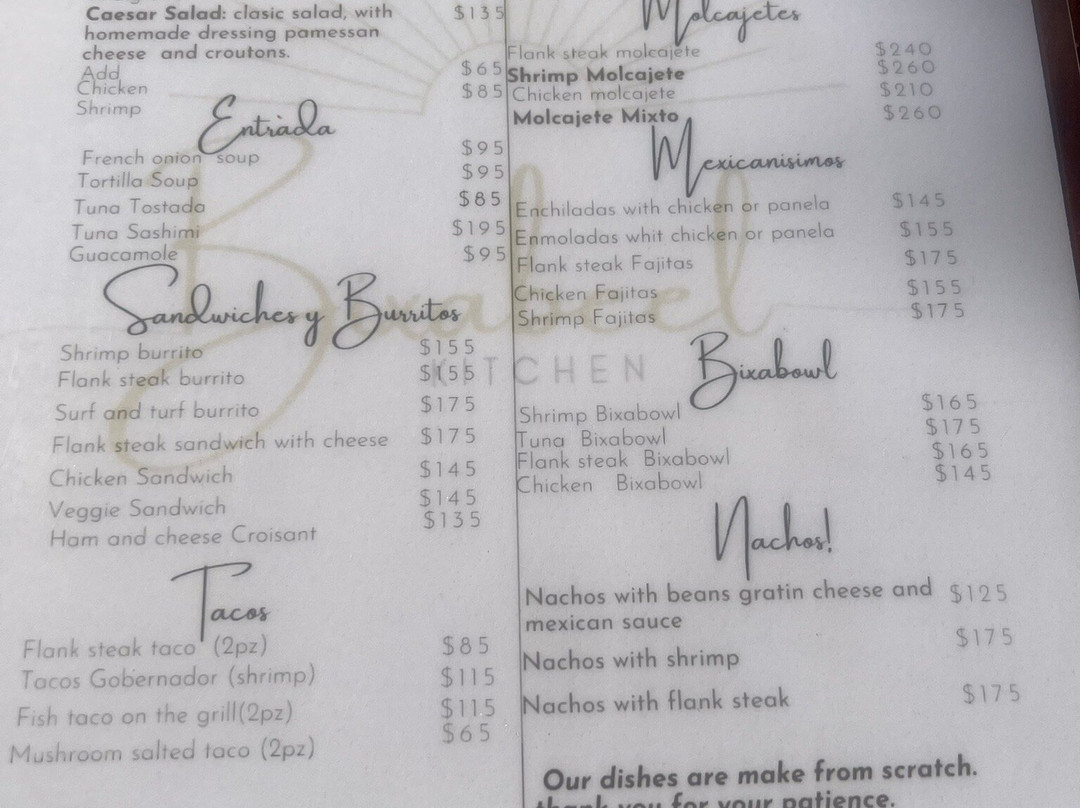 Caesar Salad: clasic salad, with $135
homemade dressing pamessan
cheese and croutons.
Add
Chicken $65
Shrimp $85
Entrada
French onion soup $95
Tortilla Soup $95
Tuna Tostada $85
Tuna Sashimi $195
Guacamole $95
Sandwiches y Burritos
Shrimp burrito $155
Flank steak burrito $155
Surf and turf burrito $175
Flank steak sandwich with cheese $175
Chicken Sandwich $145
Veggie Sandwich $145
Ham and cheese Croisant $135
Tacos
Flank steak taco (2pz) $85
Tacos Gobernador (shrimp) $115
Fish taco on the grill(2pz) $115
Mushroom salted taco (2pz) $65
Molcajetes
Flank steak molcajete $240
Shrimp Molcajete $260
Chicken molcajete $210
Molcajete Mixto $260
Mexicanisimos
Enchiladas with chicken or panela $145
Enmoladas whit chicken or panela $155
Flank steak Fajitas $175
Chicken Fajitas $155
Shrimp Fajitas $175
Bixabowl
Shrimp Bixabowl $165
Tuna Bixabowl $175
Flank steak Bixabowl $165
Chicken Bixabowl $145
Nachos!
Nachos with beans gratin cheese and $125
mexican sauce
Nachos with shrimp $175
Nachos with flank steak $175
Our dishes are make from scratch.
thank you for your patience.
Bixabeel
KITCHEN